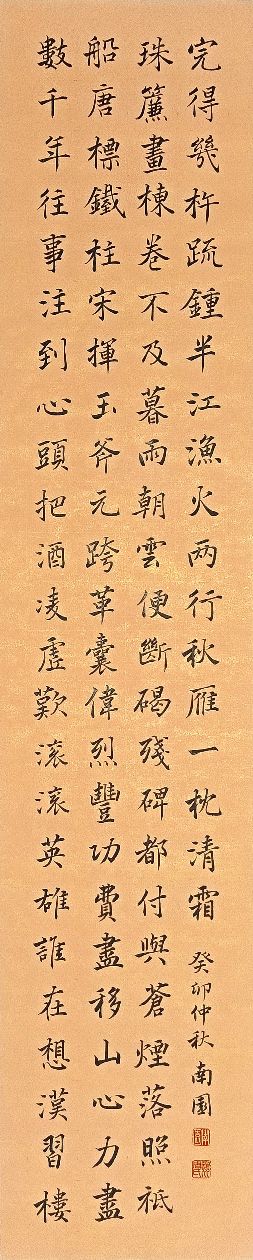 數千年往事注到心頭把酒凌虛歎滾滾英雄誰在想漢習樓
船唐標鐵柱宋揮玉斧元跨革囊偉烈豐功費盡移山心力盡
珠簾畫棟卷不及暮雨朝雲便斷碣殘碑都付與蒼煙落照祗
完得幾杵疏鍾半江漁火两行秋雁一枕清霜
癸卯仲秋南園